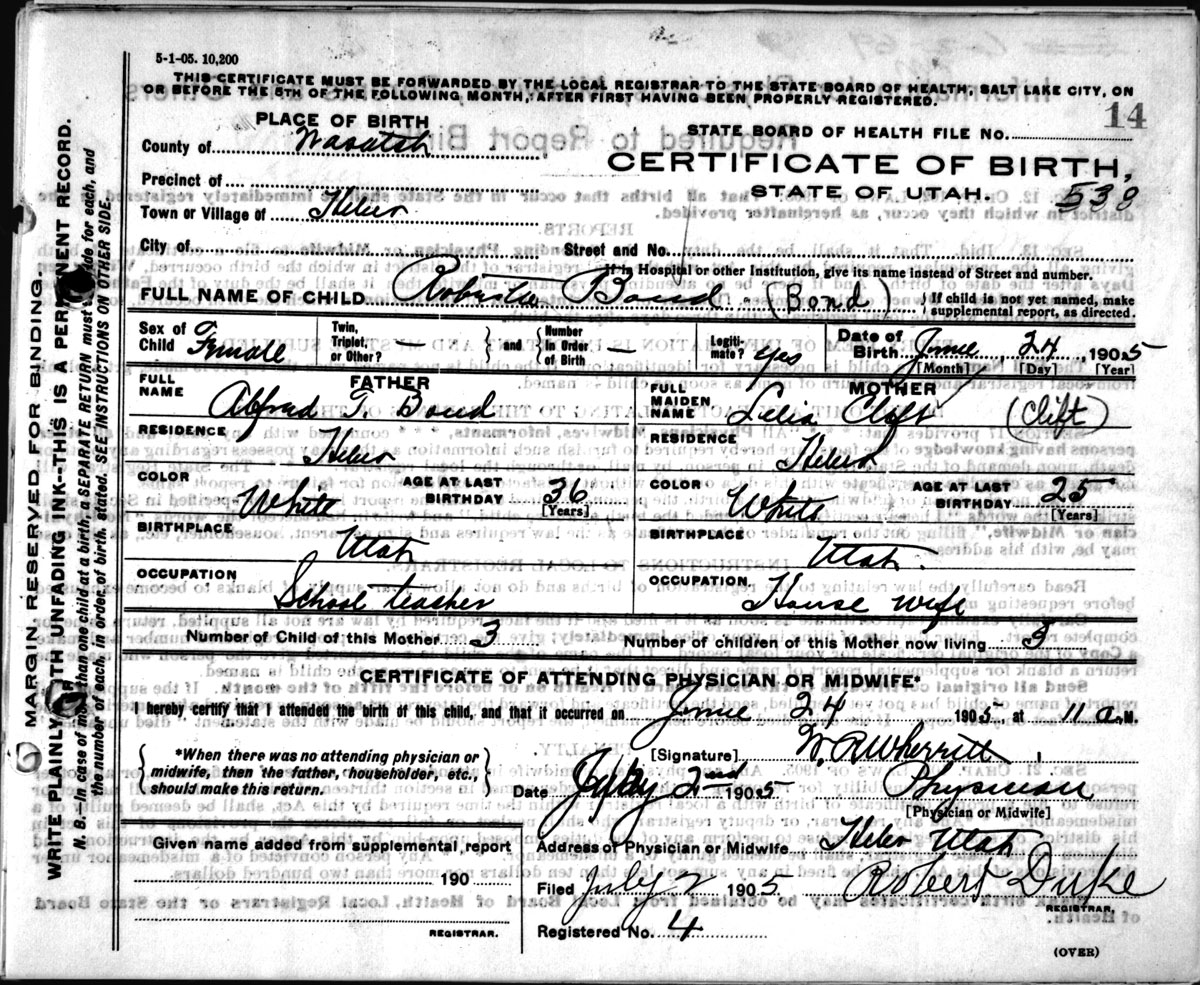 5-1-05. 10,200
THIS CERTIFICATE MUST BE FORWARDED BY THE LOCAL REGISTRAR TO THE STATE BOARD OF HEALTH, SALT LAKE CITY, ON
OR BEFORE THE 5TH OF THE FOLLOWING MONTH, AFTER FIRST HAVING BEEN PROPERLY REGISTERED.
14
PLACE OF BIRTH
STATE BOARD OF HEALTH FILE NO.
County of Wasatch
CERTIFICATE OF BIRTH,
Precinct of
STATE OF UTAH.
538
Town or Village of Heber
City of
Street and No.
If in Hospital or other Institution, give its name instead of Street and number.
FULL NAME OF CHILD Bond (Bond)
If child is not yet named, make
supplemental report, as directed.
Sex of Child Female
Twin, Triplet, or Other? —
and
Number in Order of Birth —
Legitimate? yes
Date of Birth June, 24, 1905
[Month] [Day] [Year]
FATHER
FULL NAME Alfred T Bond
RESIDENCE Heber
COLOR White
AGE AT LAST BIRTHDAY 36
[Years]
BIRTHPLACE Utah
OCCUPATION School teacher
MOTHER
FULL MAIDEN NAME Clift (Clift)
RESIDENCE Heber
COLOR White
AGE AT LAST BIRTHDAY 25
[Years]
BIRTHPLACE Utah
OCCUPATION House wife
Number of Child of this Mother 3
Number of children of this Mother now living 3
CERTIFICATE OF ATTENDING PHYSICIAN OR MIDWIFE*
I hereby certify that I attended the birth of this child, and that it occurred on June 24 1905, at 11 a.M.
*When there was no attending physician or
midwife, then the father, householder, etc.,
should make this return.
[Signature] W. R. Wherritt
Date July 2nd 1905
Physician
[Physician or Midwife]
Given name added from supplemental report
190
REGISTRAR.
Address of Physician or Midwife Heber Utah
Filed July 2 1905 Robert Duke
REGISTRAR.
Registered No. 4
(OVER)
MARGIN RESERVED FOR BINDING.
WRITE PLAINLY WITH UNFADING INK--THIS IS A PERMANENT RECORD.
N. B.--In case of more than one child at a birth, a SEPARATE RETURN must be made for each, and
the number of each, in order of birth, stated. SEE INSTRUCTIONS ON OTHER SIDE.